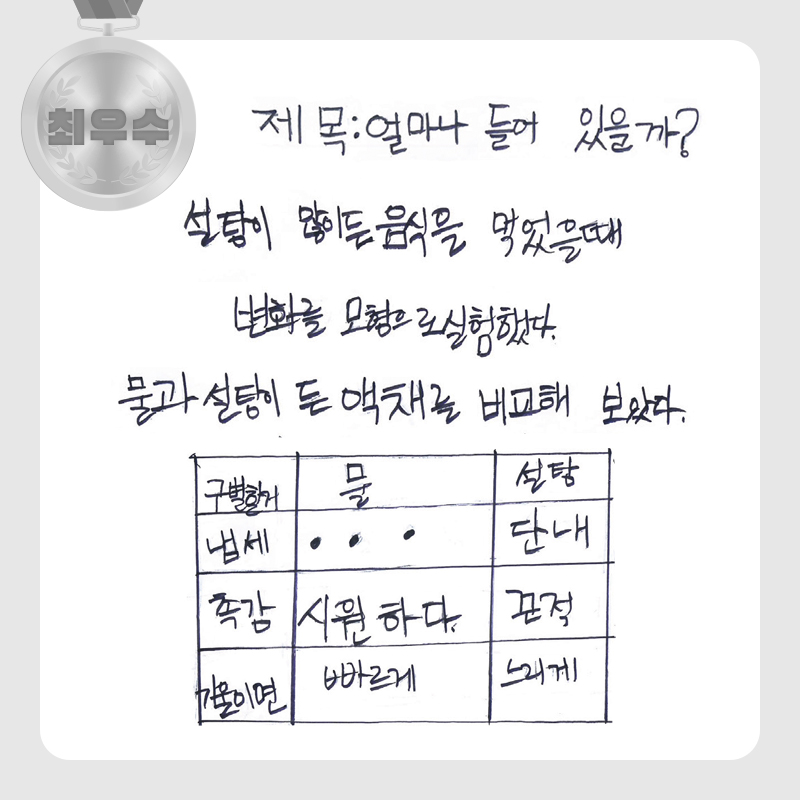 최우수
제목:얼마나 들어 있을까?
설탕이 많이든음식을 먹었을때
변화를 모형으로실험했다.
물과 설탕이 든 액채를 비교해 보았다.
구별할거 물 설탕
냄세 • • • 단내
촉감 시원하다. 끈적
기울이면 빠르게 느리게